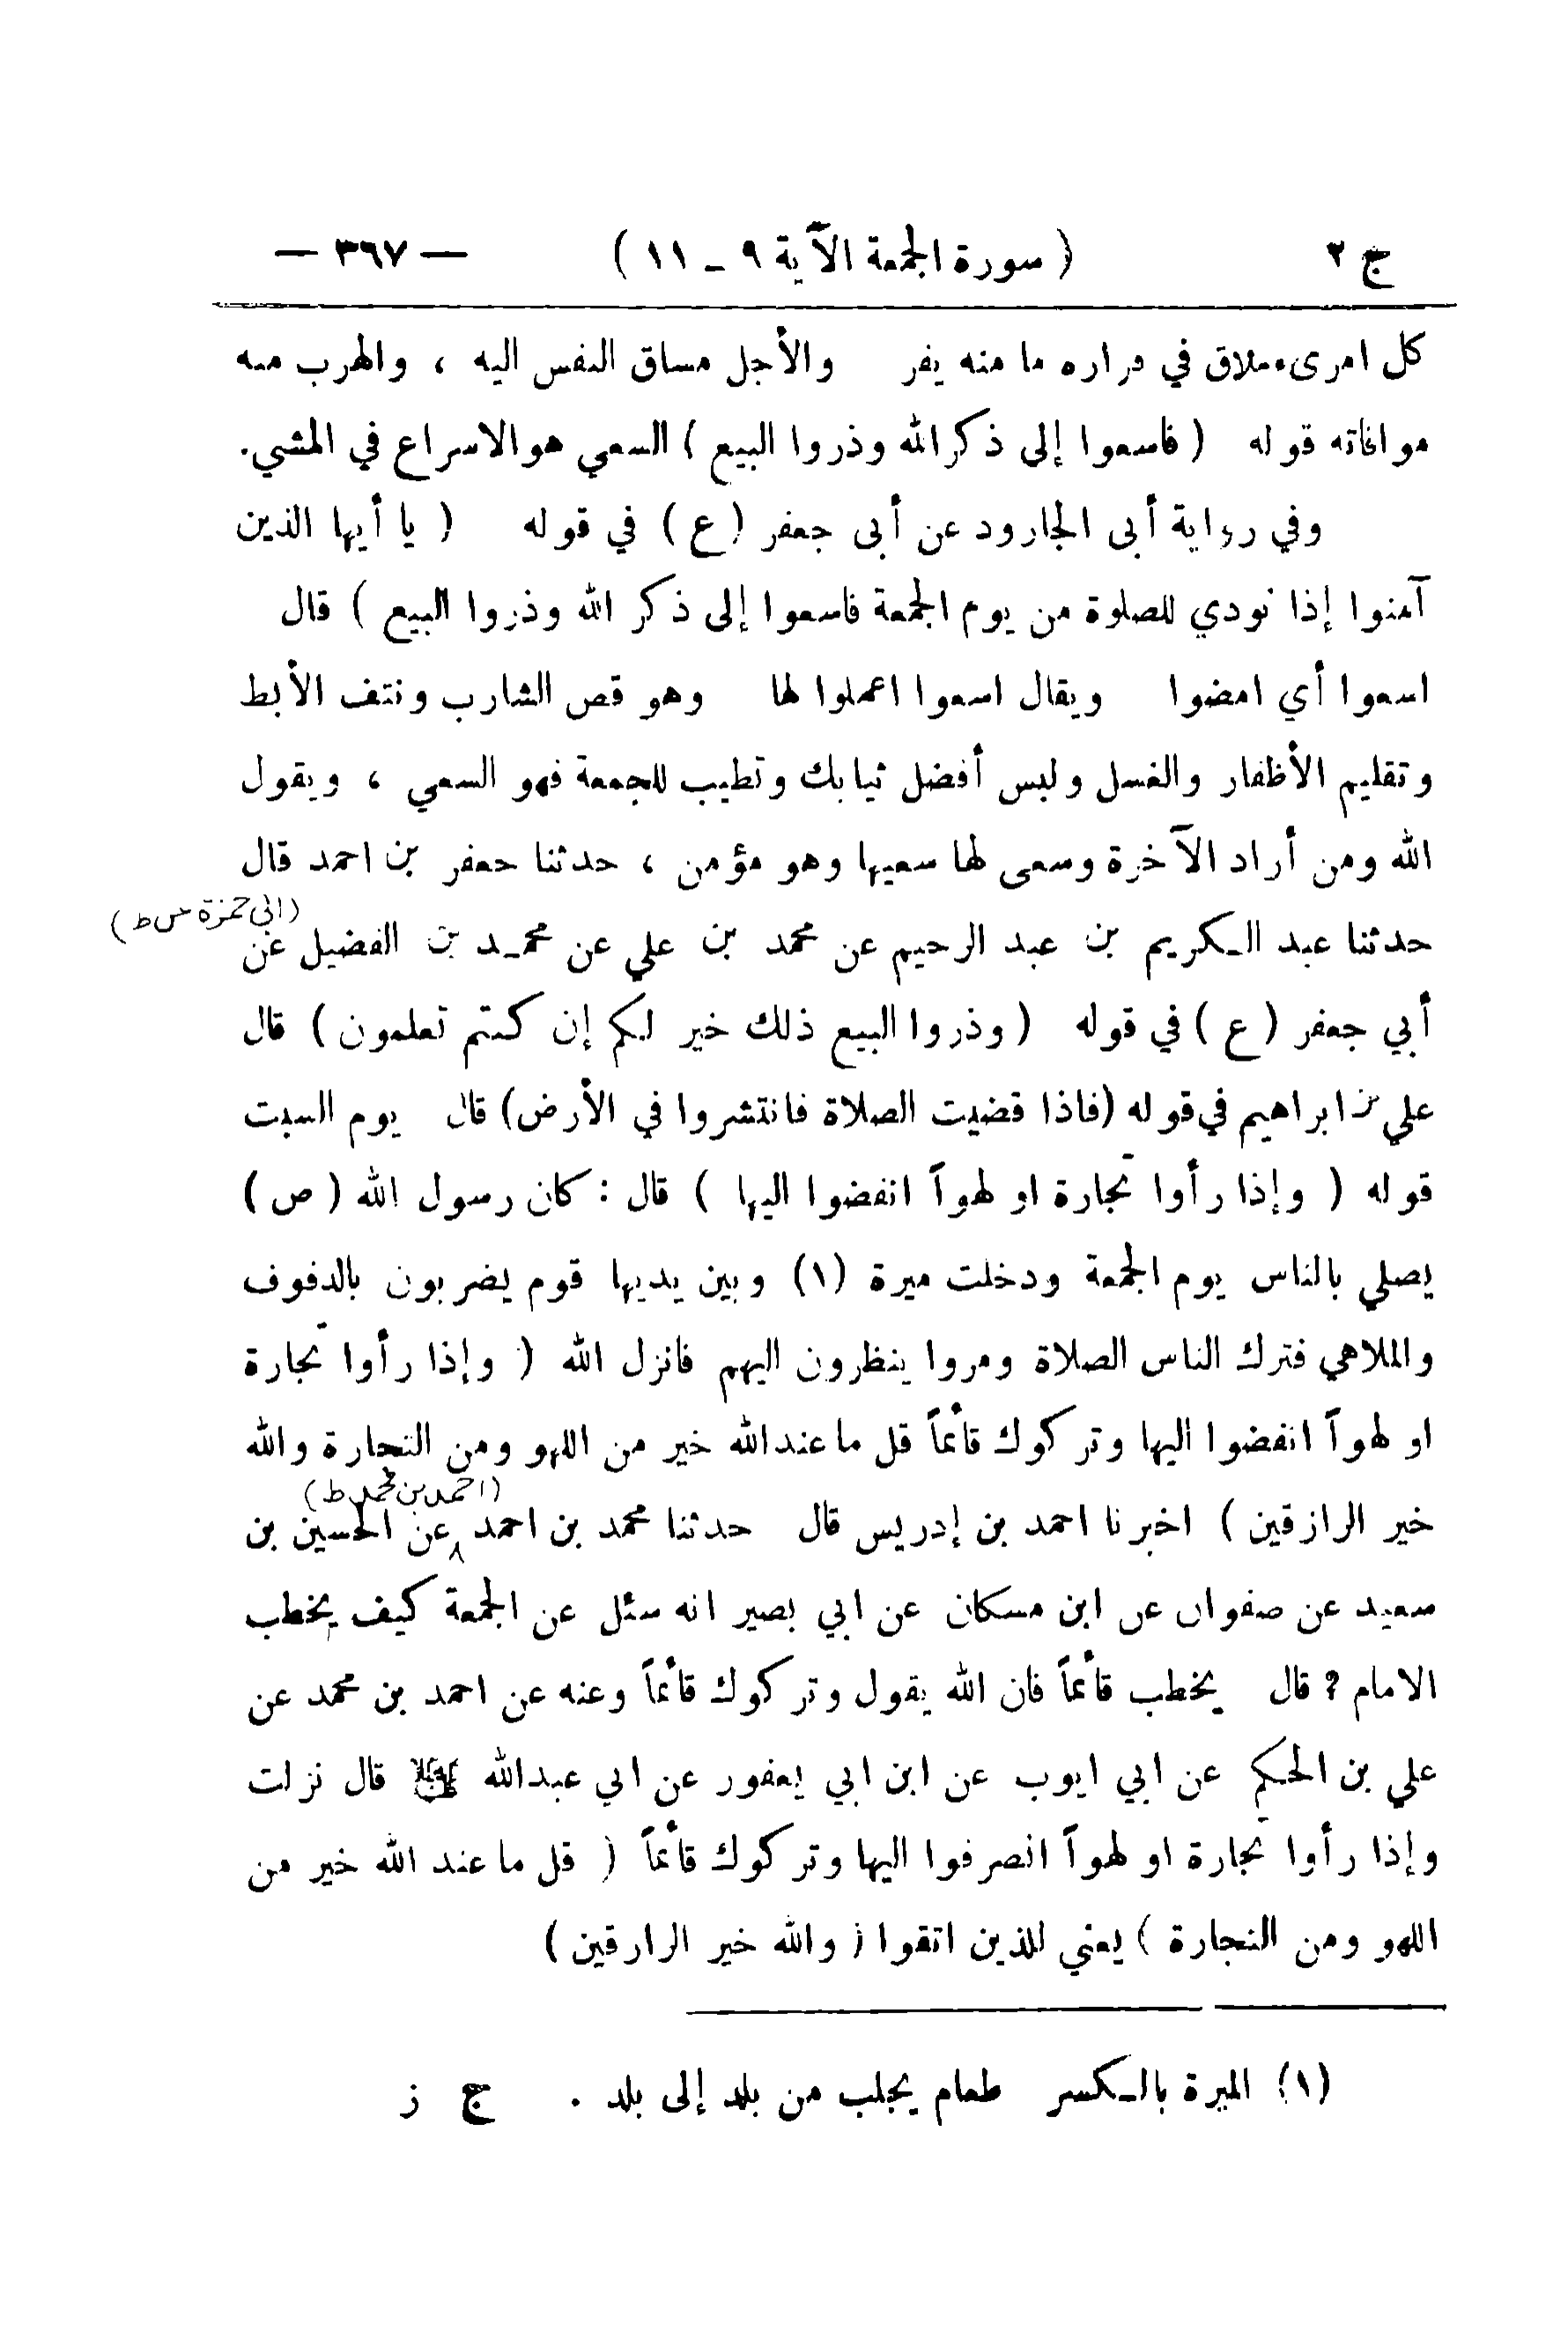 ج ٢ ( سورة الجمعة الآية ٩ ـ ١١ ) — ٣٦٧ —
كل امرىء ملاق في فراره ما منه يفر والأجل مساق النفس اليه ، والهرب منه
موافاته قوله ( فاسعوا إلى ذكر الله وذروا البيع ) السعي هو الاسراع في المشي.
وفي رواية أبى الجارود عن أبى جعفر (ع) في قوله ( يا أيها الذين
آمنوا إذا نودي للصلوة من يوم الجمعة فاسعوا إلى ذكر الله وذروا البيع ) قال
اسعوا أي امضوا ويقال اسعوا اعملوا لها وهو قص الشارب ونتف الأبط
وتقليم الأظفار والغسل ولبس أفضل ثيابك وتطيب للجمعة فهو السعي ، ويقول
الله ومن أراد الآخرة وسعى لها سعيها وهو مؤمن ، حدثنا جعفر بن احمد قال
(ابي حمزة س ط)
حدثنا عبد الكريم بن عبد الرحيم عن محمد بن علي عن محمد بن الفضيل عن
أبي جعفر (ع) في قوله ( وذروا البيع ذلك خير لكم إن كنتم تعلمون ) قال
علي بن ابراهيم في قوله (فاذا قضيت الصلاة فانتشروا في الأرض) قال يوم السبت
قوله ( وإذا رأوا تجارة او لهواً انفضوا اليها ) قال : كان رسول الله ( ص )
يصلي بالناس يوم الجمعة ودخلت ميرة (١) وبين يديها قوم يضربون بالدفوف
والملاهي فترك الناس الصلاة ومروا ينظرون اليهم فانزل الله ( وإذا رأوا تجارة
او لهواً انفضوا اليها وتركوك قائماً قل ما عند الله خير من اللهو ومن التجارة والله
(احمد بن محمد ط)
خير الرازقين ) اخبرنا احمد بن إدريس قال حدثنا محمد بن احمد عن الحسين بن
سعيد عن صفوان عن ابن مسكان عن ابي بصير انه سئل عن الجمعة كيف يخطب
الامام ؟ قال يخطب قائماً فان الله يقول وتركوك قائماً وعنه عن احمد بن محمد عن
علي بن الحكم عن ابي ايوب عن ابن ابي يعفور عن ابي عبدالله عليه السلام قال نزلت
وإذا رأوا تجارة او لهواً انصرفوا اليها وتركوك قائماً ( قل ما عند الله خير من
اللهو ومن التجارة ) يعني للذين اتقوا ( والله خير الرازقين )
(١) الميرة بالكسر طعام يجلب من بلد إلى بلد . ج ز